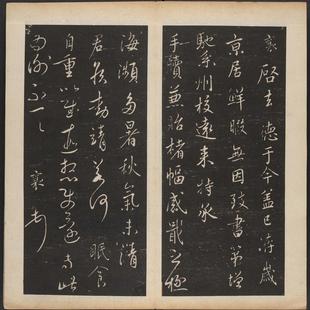 襄啓去德于今蓋已洊歲
京居鮮暇無因致書第增
馳系州校遠來特承
手牘兼貽楮幅感戢之極
海瀕多暑秋氣未清
君侯動靖若何眠食
自重以慰遠想
為謝不一一 襄